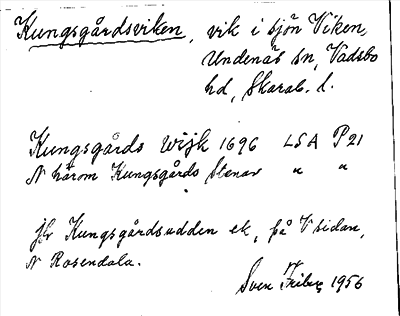 Kungsgårdsviken, vik i sjön Viken,
Undenäs sn, Vadsbo
hd, Skarab. l.
Kungsgårds wijk 1696 LSA P 21
N härom Kungsgårds Stenar " "
jfr Kungsgårdsudden ek, på V sidan,
N Rosendala.
Sven Friberg 1956